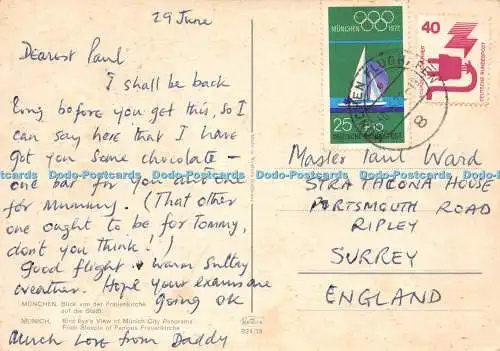 29 June
Dearest Paul,
I shall be back
long before you get this, so I
can say here that I have
got you some chocolate –
one bar for you and one
for Mummy. (That other
one ought to be for Tommy,
don't you think!)
Good flight. Warm sultry
weather. Hope your exams are
going ok
Much Love from Daddy
MÜNCHEN. Blick von der Frauenkirche
auf die Stadt
MUNICH. Bird Eye's View of Munich-City Panorama
From Steeple of Famous Frauenkirche
924/15
MÜNCHEN 1972
25+5
DEUTSCHE BUNDESPOST
40
DEUTSCHE BUNDESPOST
MÜNCHEN FLUGHAFEN
8
Master Paul Ward
STRATHCONA HOUSE
PORTSMOUTH ROAD
RIPLEY
SURREY
ENGLAND
Dada-Postcards Dada-Postcards Dada-Postcards Dada-Postcards Dada-Postcards